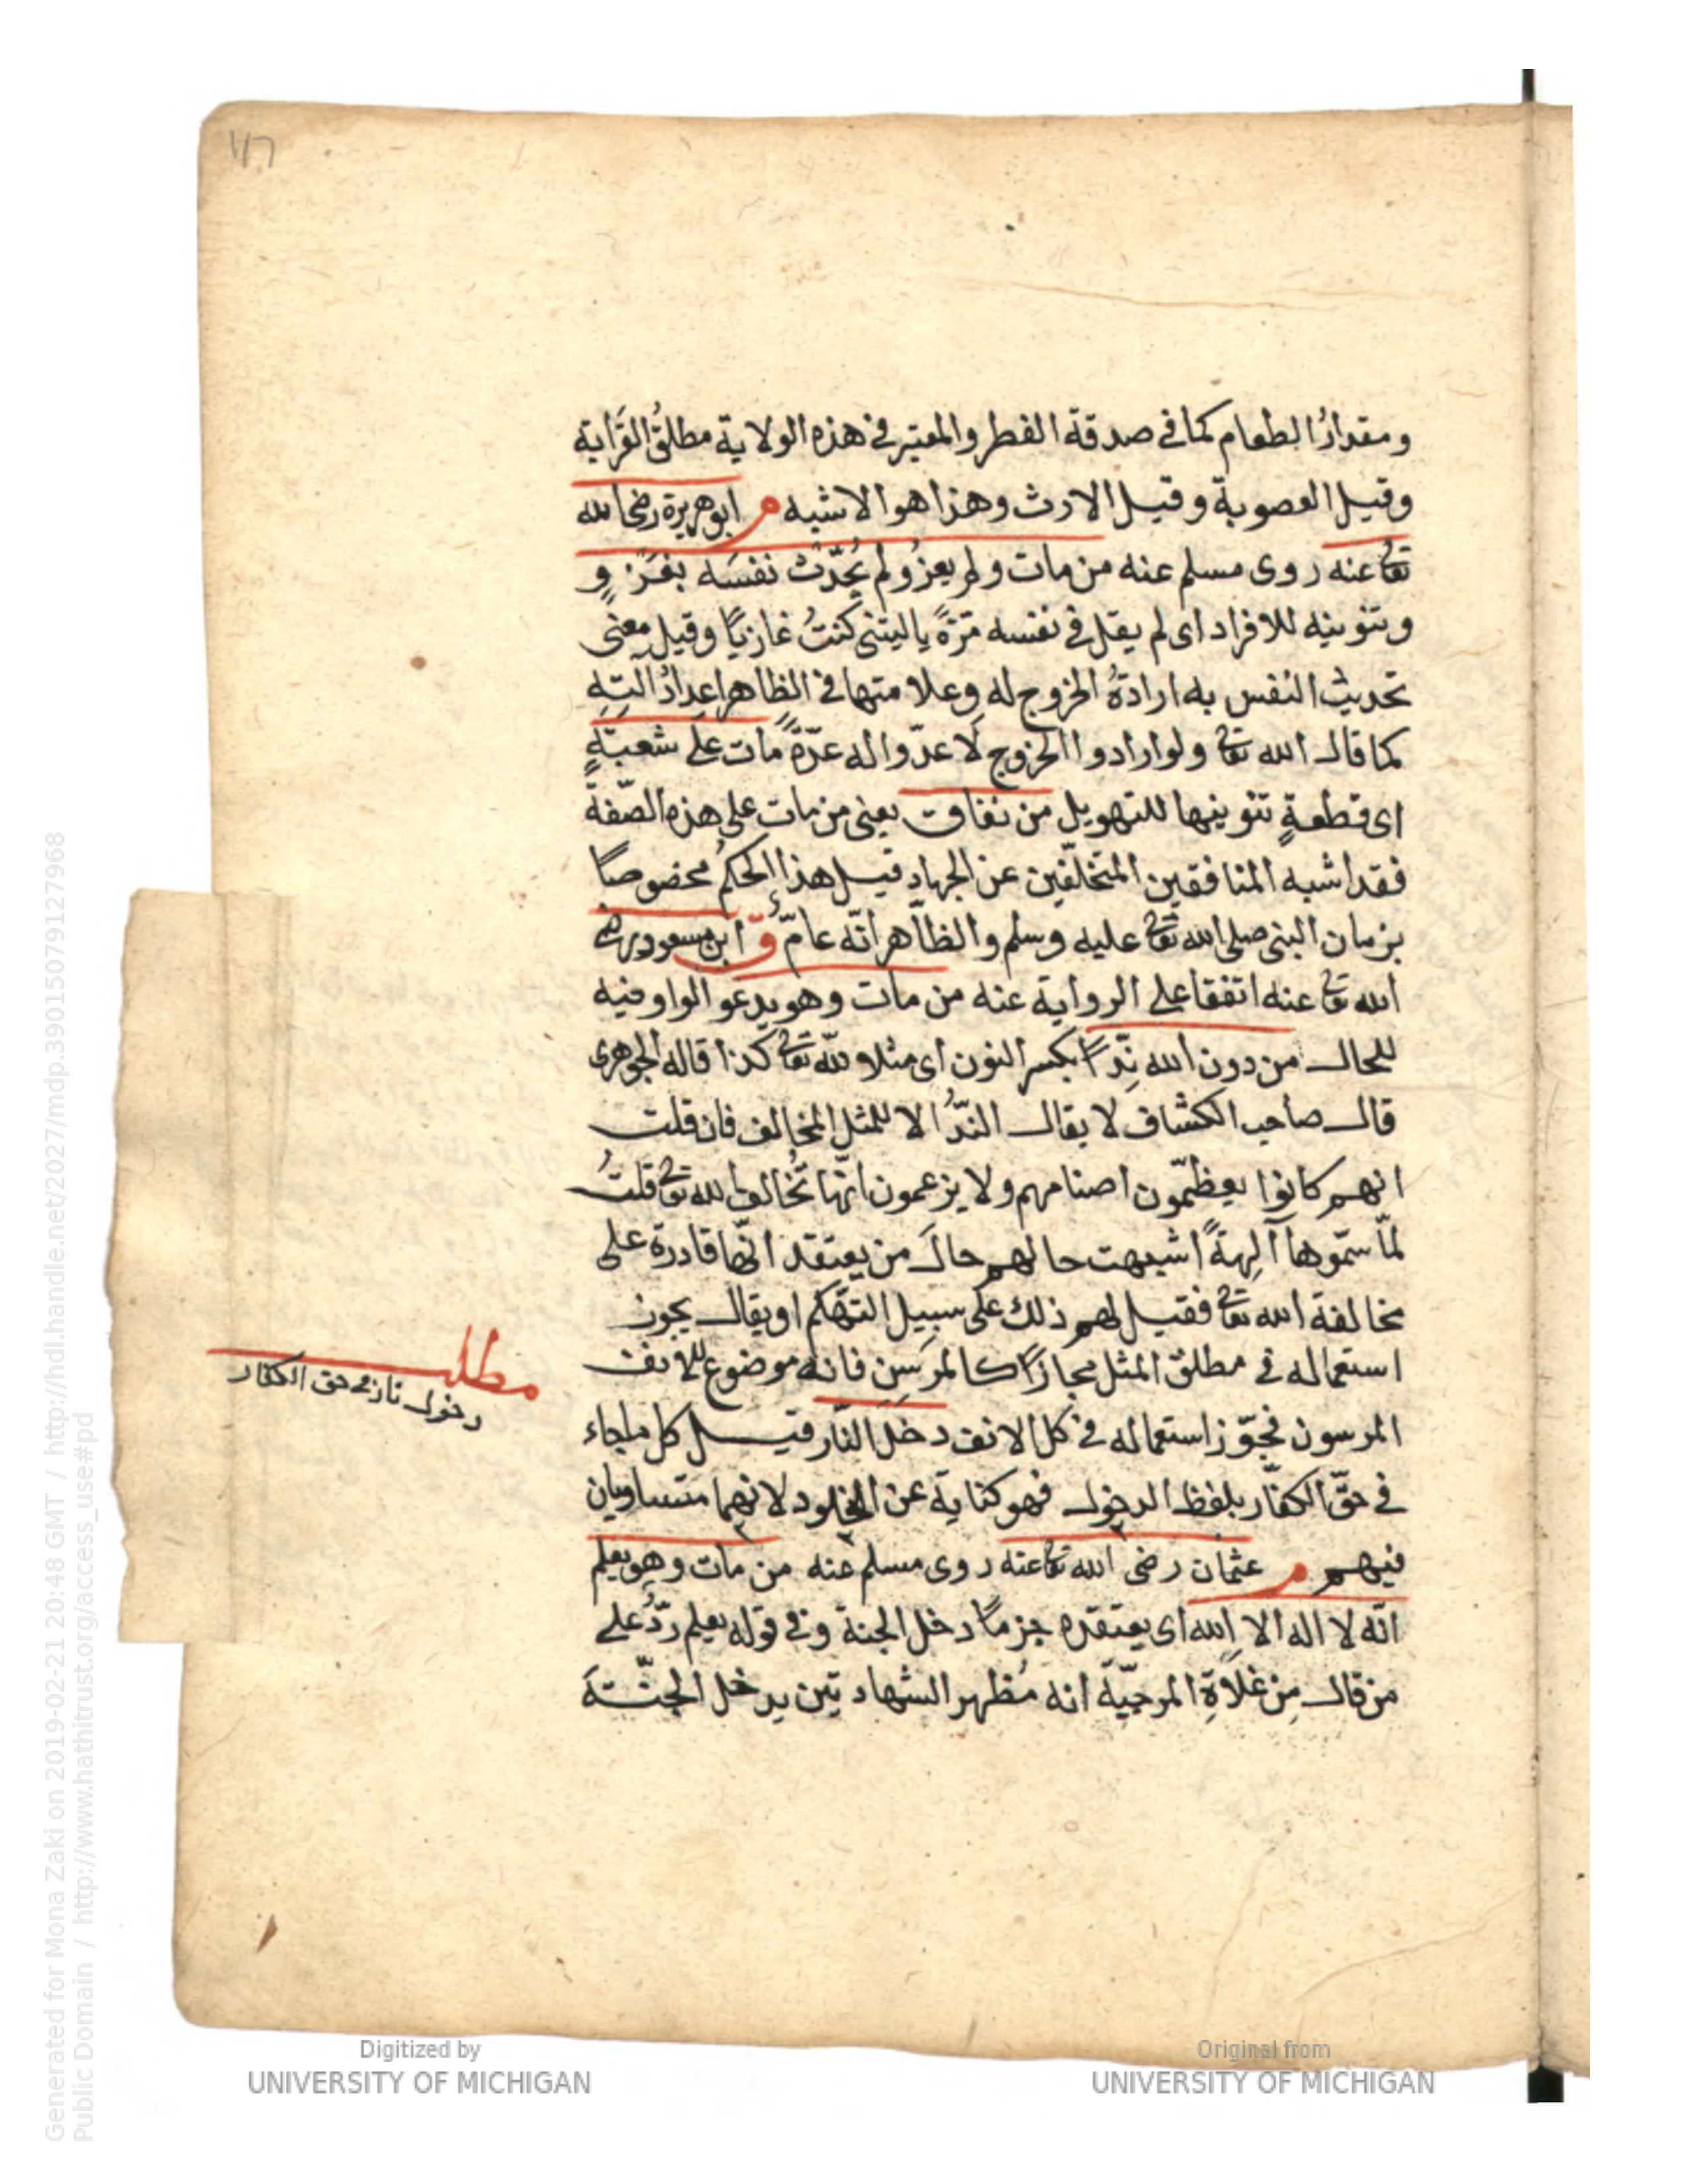 ومقدارُ الطعام كما في صدقة الفطر والمعتبر في هذه الولاية مطلقُ القرابة
وقيل العصوبة وقيل الارث وهذا هو الاشبه م ابو هريرة رضى الله
تعا عنه روى مسلم عنه من مات ولم يغز ولم يُحدّث نفسَه بغَزوٍ
وتنوينه للافراد اى لم يقل في نفسه مَرّةً ياليتنى كنتُ غازيًا وقيل معنى
تحديث النفس به ارادةُ الخروج له وعلامتها في الظاهر اعدادُ آلتِهِ
كما قال الله تعا ولو ارادوا الخروج لَاعدّوا له عدّةً مات على شعبةٍ
اى قطعةٍ تنوينها للتهويل من نفاق يعنى من مات على هذه الصّفة
فقد اشبه المنافقين المتخلّفين عن الجهاد قيل هذا الحكمُ مخصوصًا
بزمان النبى صلى الله تعا عليه وسلم والظاهر انّه عامّ ق ابن مسعود رضى
الله تعا عنه اتفقا على الرواية عنه من مات وهو يدعو الواو فيه
للحال من دون الله نِدًّا بكسر النون اى مثلا ولله تعا كذا قاله الجوهرى
قال صاحب الكشاف لا يقال النِدُّ الا للمثل المخالف فان قلت
انهم كانوا يعظّمون اصنامهم ولا يزعمون انّها تُخالف الله تعا قلتُ
لمّا سمّوها آلِهةً اشبهت حالهم حالَ من يعتقد انّها قادرة على
مخالفة الله تعا فقيل لهم ذلك على سبيل التهكّم او يقال يجوز
استعماله في مطلق المثل مجازًا كالمرسِن فانه موضوع للانف
المرسون فجوّز استعماله في كل الانف دخل النّار قيل كل ما جاء
في حقّ الكفّار بلفظ الدخول فهو كناية عن الخلود لانهما متساويان
فيهم م عثمان رضى الله تعا عنه روى مسلم عنه من مات وهو يعلم
انّه لا اله الا الله اى يعتقده جزمًا دخل الجنة وفي قوله يعلم ردٌّ على
من قال مِن غلاةِ المرجيّة انه مُظهر الشهادتين يدخل الجنّةَ
مطلب
دخول نار في حق الكفار
Generated for Mona Zaki on 2019-02-21 20:48 GMT / http://hdl.handle.net/2027/mdp.39015079127968
Public Domain / http://www.hathitrust.org/access_use#pd
Digitized by
UNIVERSITY OF MICHIGAN
Original from
UNIVERSITY OF MICHIGAN